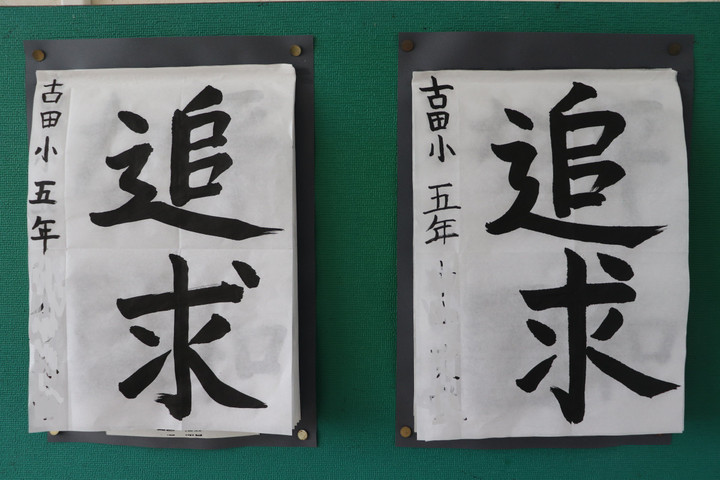 追求
古田小 五年
追求
古田小 五年